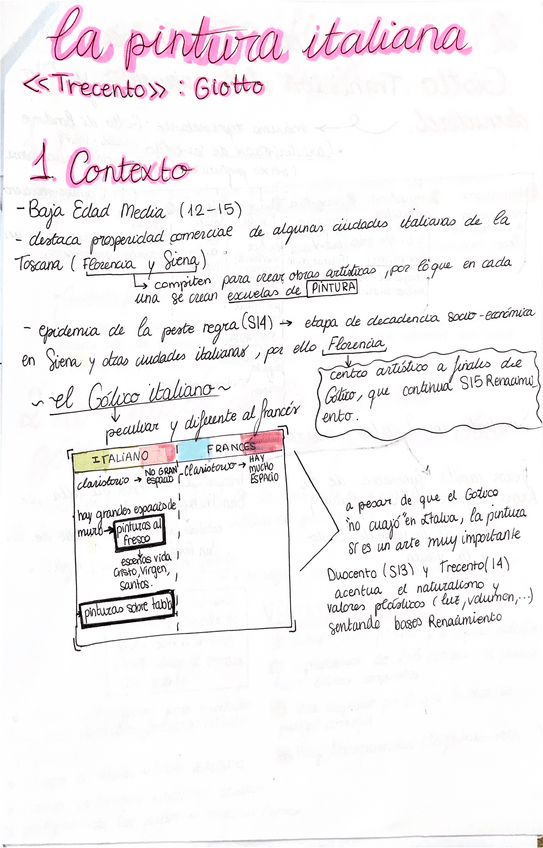 la pintura italiana
<<Trecento>> : Giotto
1. Contexto
- Baja Edad Media (12-15)
- destaca prosperidad comercial de algunas ciudades italianas de la
Toscana (Florencia y Siena)
compiten para crear obras artísticas, por lo que en cada
una se crean escuelas de PINTURA
- epidemia de la peste negra (S14) → etapa de decadencia socio-económica
en Siena y otras ciudades italianas, por ello Florencia
centro artístico a finales de
Gótico, que continua S15 Renacimi
ento.
~el Gótico italiano~
peculiar y diferente al francés
ITALIANO
claristorio → NO GRAN
ESPACIO
hay grandes espacios de
muro → pinturas al
fresco
escenas vida
Cristo, Virgen,
Santos.
pinturas sobre tabla
FRANCÉS
claristorio → HAY
MUCHO
ESPACIO
a pesar de que el Gótico
"no cuajó" en Italia, la pintura
sí es un arte muy importante
Duocento (S13) y Trecento (14)
acentua el naturalismo y
valores plásticos (luz, volumen,...)
sentando bases Renacimiento